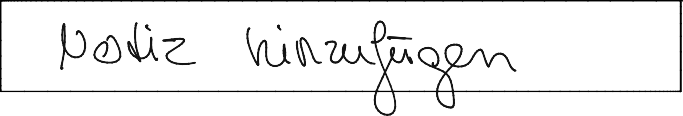 Notiz hinzufügen